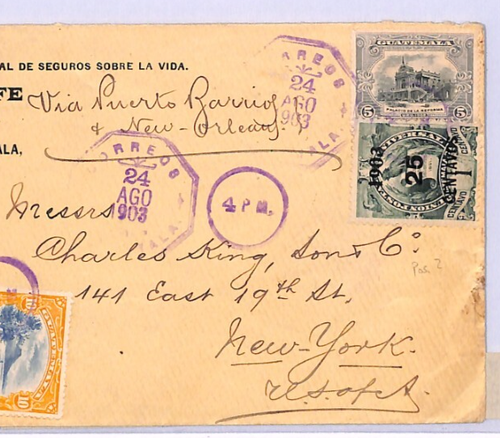 AL DE SEGUROS SOBRE LA VIDA.
FE
Via Puerto Barrios
& New-Orleans.
ALA,
CORREOS
24
AGO
903
ALA
GUATEMALA
5
5
1903
25
CENTAVOS
1
CORREOS
24
AGO
1903
ALA
4 P M.
Messrs
Charles King, Sons & Co.
141 East 19th St,
New-York.
U.S. of A.
10